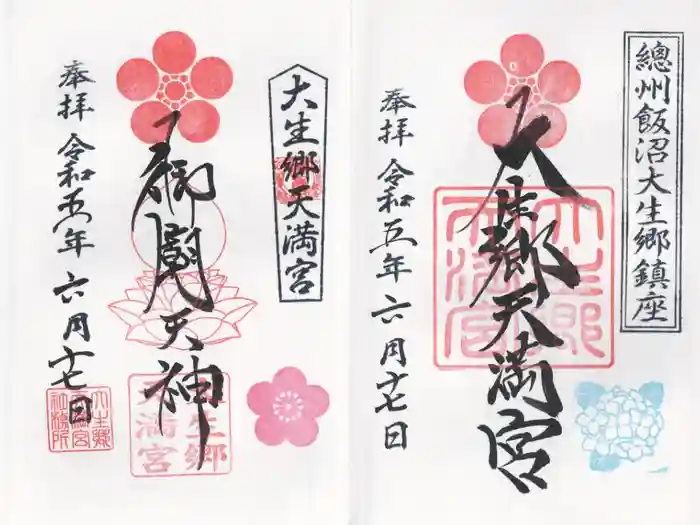 總州飯沼大生郷鎮座
大生郷天満宮
奉拝 令和五年 六月十七日
大生郷天満宮
大生郷天満宮
御廟天神
奉拝 令和五年 六月十七日
大生郷
天満宮
大生郷
天満宮
社務所